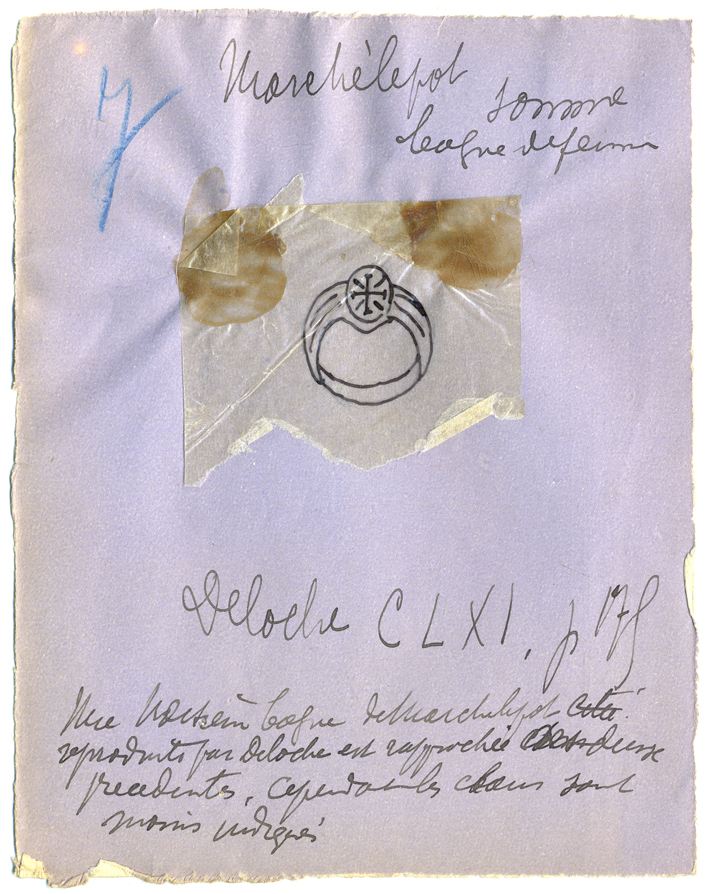 Marchélepot
Somme
bague de femme
Deloche CLXI, p 175
Une troisième bague de Marchelepot cité
reproduite par Deloche est rapprochée des deux
precedentes, cependant les clous sont
moins indiqués